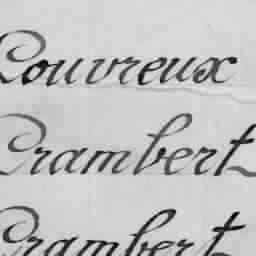 Couvreux
Crambert
Crambert